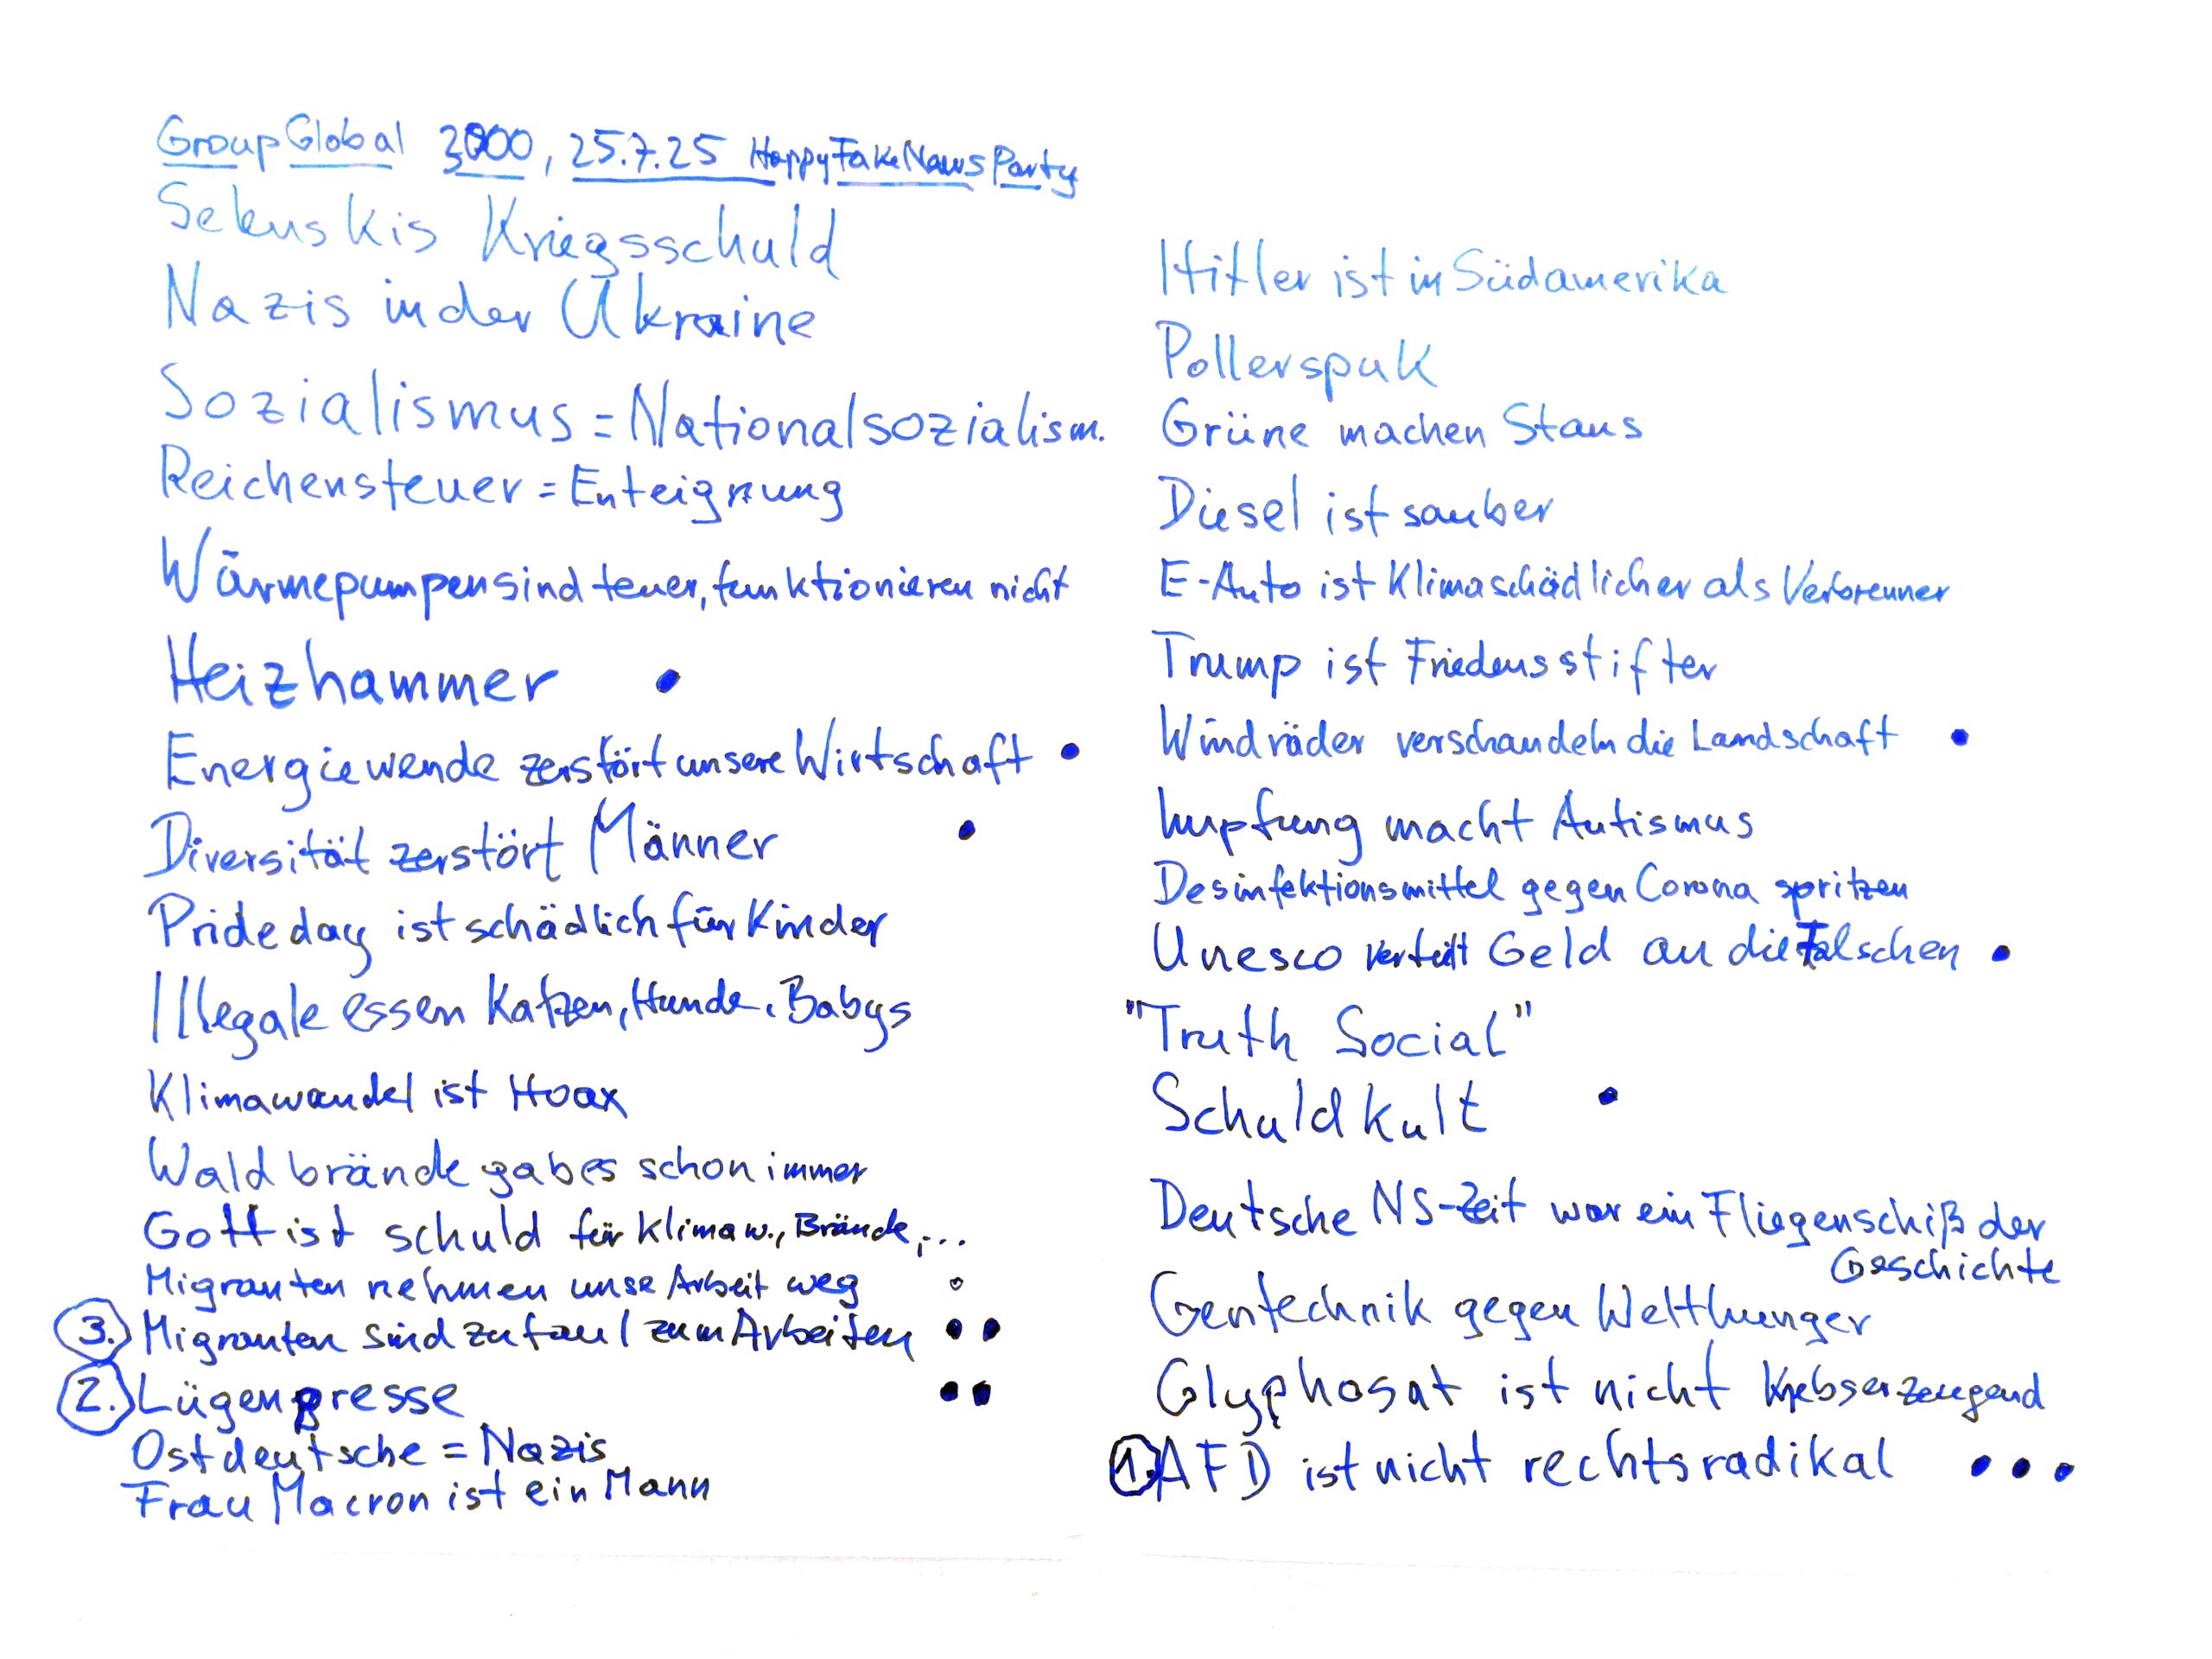 GroupGlobal 3000, 25.7.25 HappyFakeNewsParty
Selenskis Kriegsschuld
Nazis in der Ukraine
Sozialismus = Nationalsozialism.
Reichensteuer = Enteignung
Wärmepumpen sind teuer, funktionieren nicht
Heizhammer •
Energiewende zerstört unsere Wirtschaft •
Diversität zerstört Männer •
Pride day ist schädlich für Kinder
Illegale essen Katzen, Hunde, Babys
Klimawandel ist Hoax
Waldbrände gab es schon immer
Gott ist schuld für Klimaw., Brände, ...
Migranten nehmen unse Arbeit weg °
3. Migranten sind zu faul zum Arbeiten ••
2. Lügenpresse ••
Ostdeutsche = Nazis
Frau Macron ist ein Mann
Hitler ist in Südamerika
Pollerspuk
Grüne machen Staus
Diesel ist sauber
E-Auto ist Klimaschädlicher als Verbrenner
Trump ist Friedensstifter
Windräder verschandeln die Landschaft •
Impfung macht Autismus
Desinfektionsmittel gegen Corona spritzen
Unesco verteilt Geld an die Falschen •
"Truth Social"
Schuldkult •
Deutsche NS-Zeit war ein Fliegenschiß der
Geschichte
Gentechnik gegen Welthunger
Glyphosat ist nicht Krebserzeugend
1. AFD ist nicht rechtsradikal •••